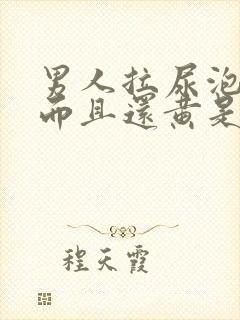 男人拉尿泡
而且還黄是
程天霞